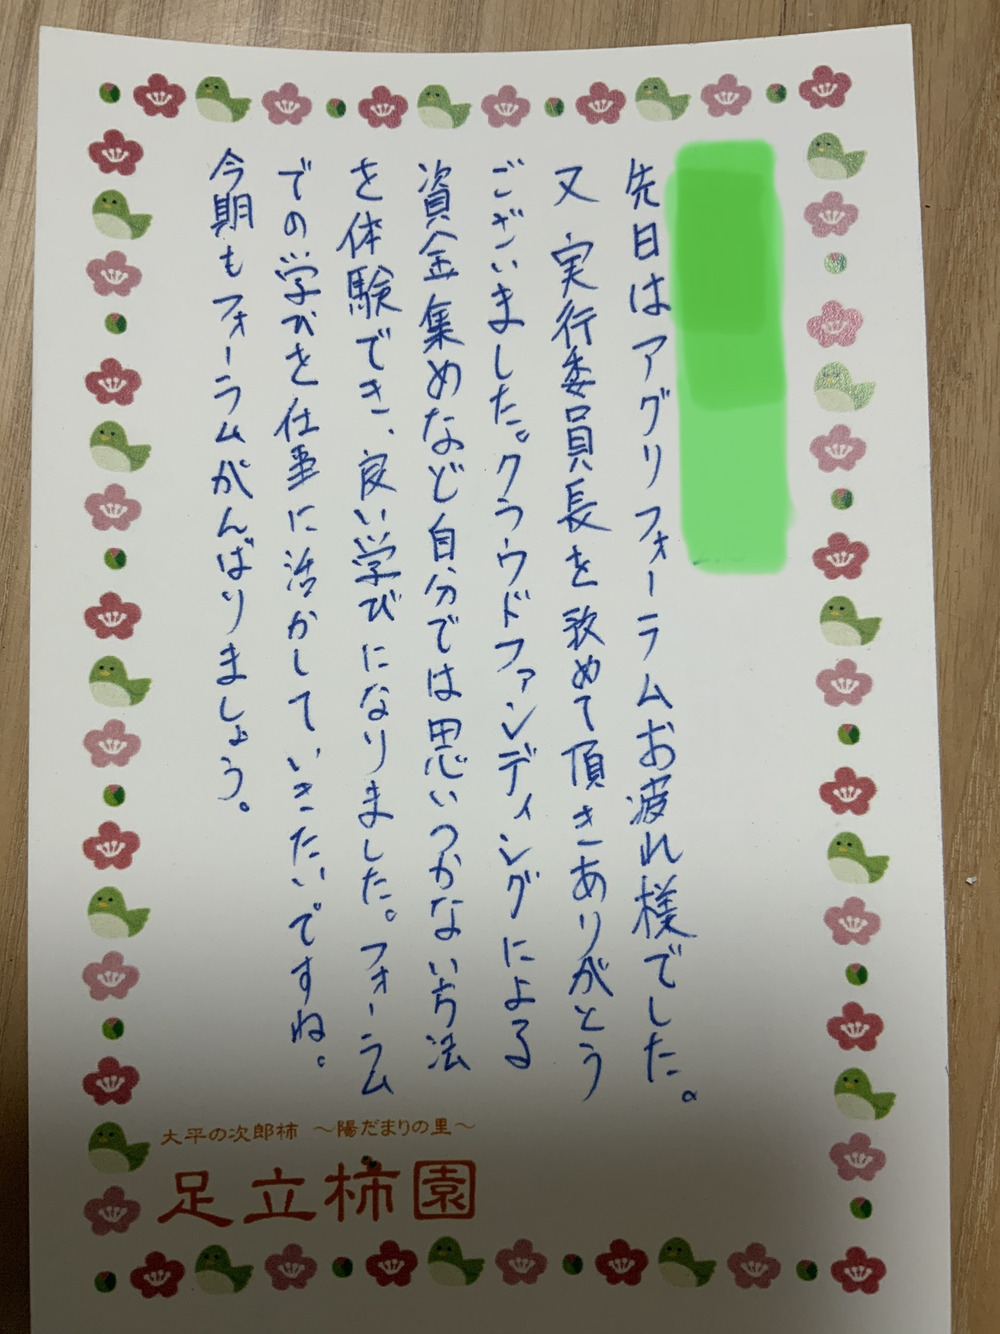 先日はアグリフォーラムお疲れ様でした。
又、実行委員長を改めて頂きありがとう
ございました。クラウドファンディングによる
資金集めなど自分では思いつかない方法
を体験でき、良い学びになりました。フォーラム
での学びを仕事に活かしていきたいですね。
今期もフォーラムがんばりましょう。
大平の次郎柿 〜陽だまりの里〜
足立柿園